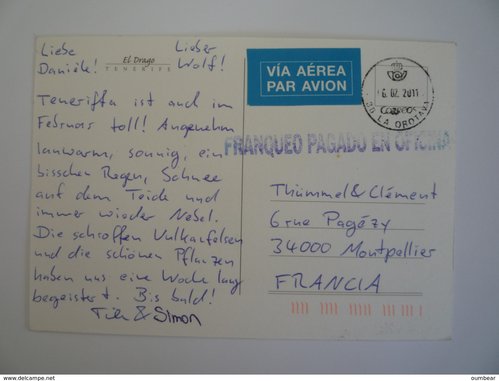 Liebe Danièle!
Lieber Wolf!
El Drago
TENERIFE
Teneriffa ist auch im
Februar toll! Angenehm
lauwarm, sonnig, ein
bisschen Regen, Schnee
auf dem Teide und
immer wieder Nebel.
Die schroffen Vulkanfelsen
und die schönen Pflanzen
haben uns eine Woche lang
begeistert. Bis bald!
& Simon
VÍA AÉREA
PAR AVION
6.02.2011
CORREOS
LA OROTAVA
FRANQUEO PAGADO EN OFICINA
Thümmel & Clément
6 rue Pagézy
34000 Montpellier
FRANCIA
All or part of this item is copyright of the owner
oumbear